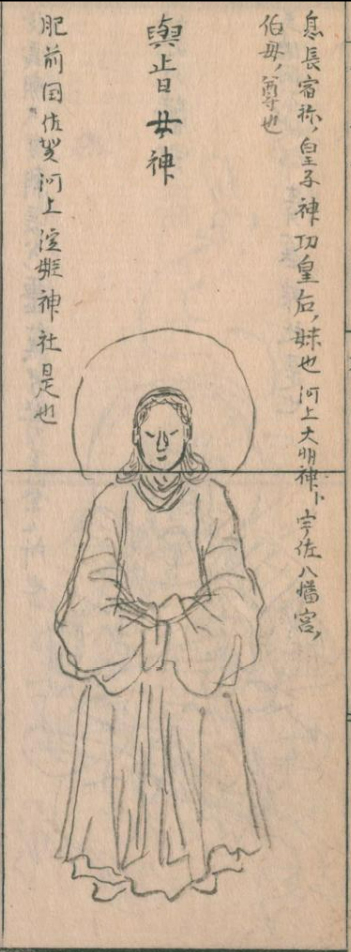 息長宿祢ノ皇子神功皇后ノ妹也河上大明神ト宇佐八幡宮ノ
伯母ノ尊也
與止日女神
肥前国佐賀河上淀姫神社是也